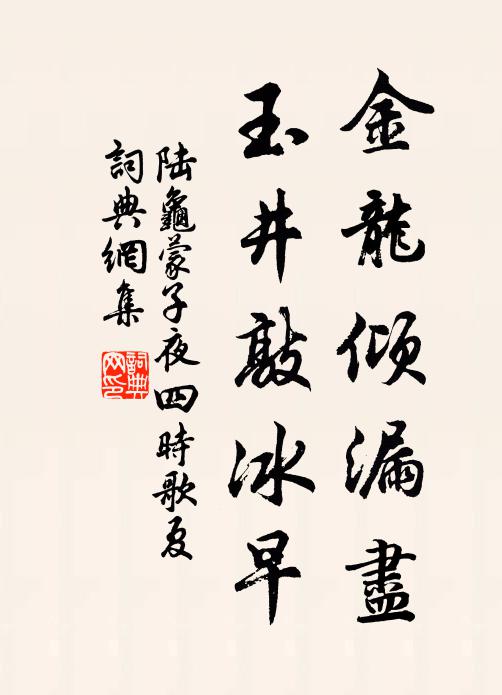 金龍傾漏盡
玉井敲冰早
陸龜蒙子夜四時歌夏
詞典網集
詞典
网印